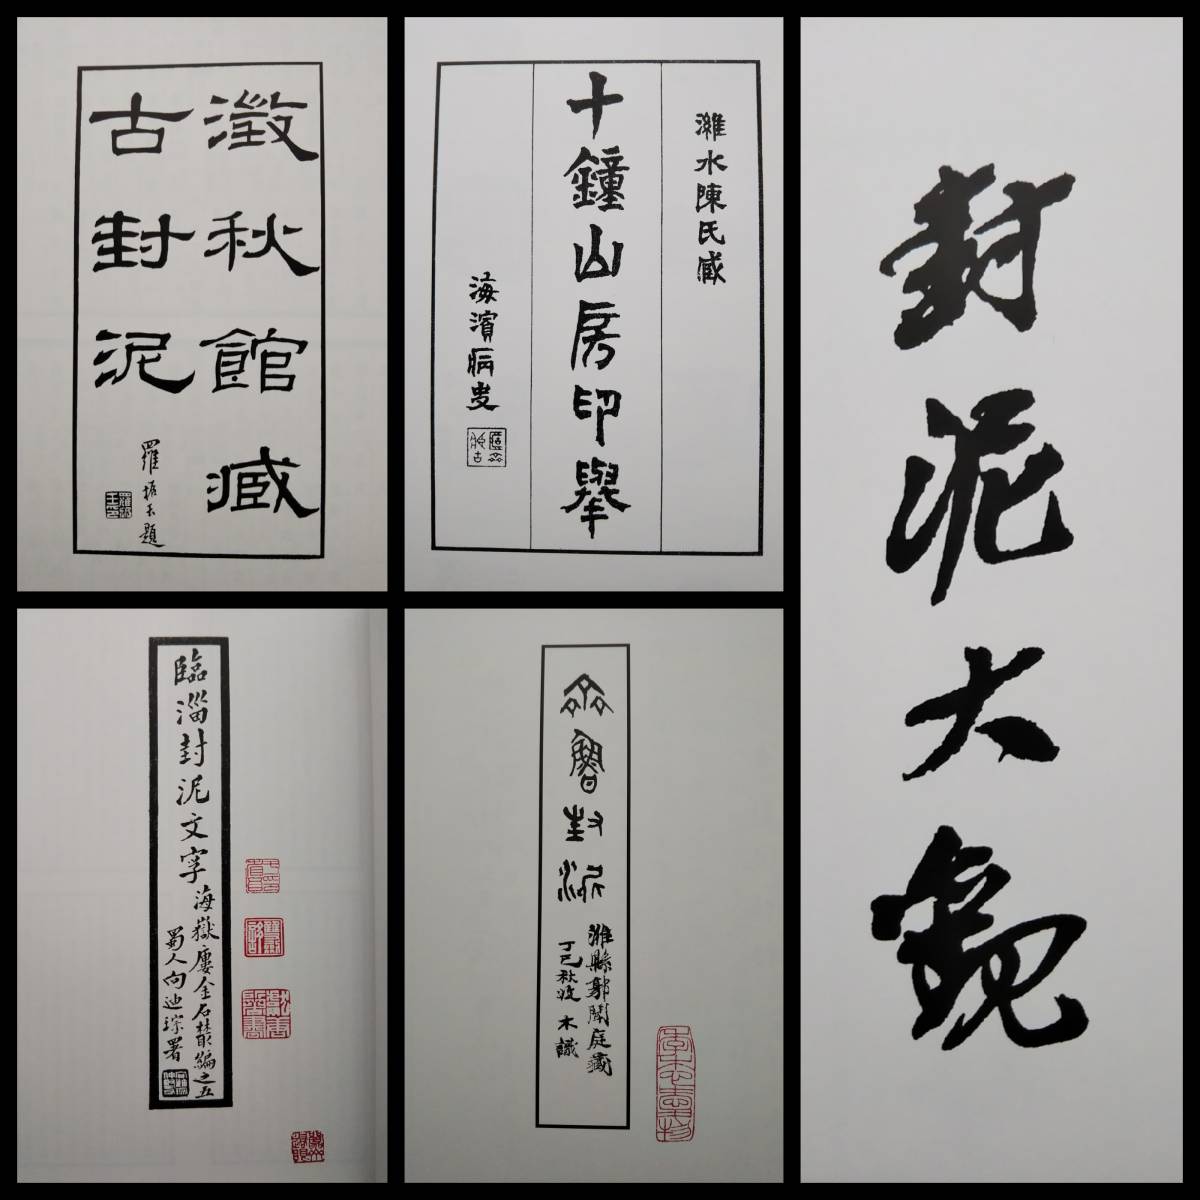 澂秋館藏
古封泥
羅振玉題
濰水陳氏藏
十鐘山房印舉
海濱病史
封泥大觀
臨淄封泥文字
海嶽廔金石叢編之五
蜀人向迪琮署
齊魯封泥
濰縣郭聞庭藏
丁巳秋政木識